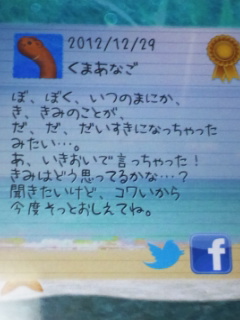 2012/12/29
くまあなご
ぼ、ぼく、いつのまにか、
き、きみのことが、
だ、だ、だいすきになっちゃった
みたい…。
あ、いきおいで言っちゃった！
きみはどう思ってるかな…？
聞きたいけど、コワいから
今度そっとおしえてね。
f